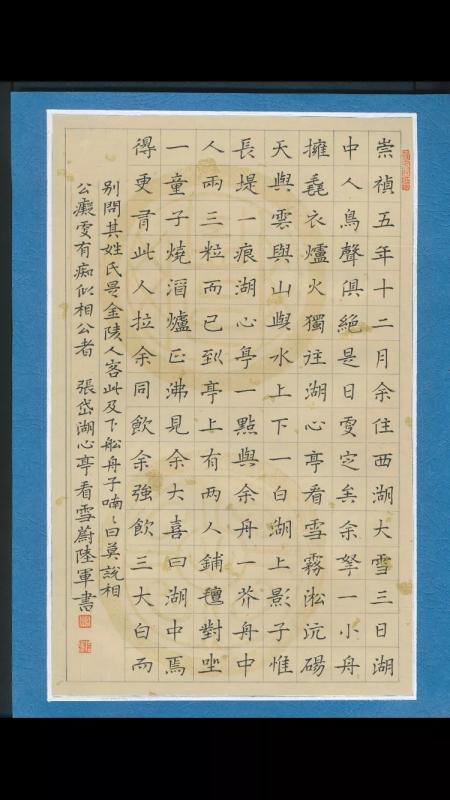 崇禎五年十二月余住西湖大雪三日湖
中人鳥聲俱絕是日更定矣余拏一小舟
擁毳衣爐火獨往湖心亭看雪霧淞沆碭
天與雲與山與水上下一白湖上影子惟
長堤一痕湖心亭一點與余舟一芥舟中
人兩三粒而已到亭上有兩人鋪氊對坐
一童子燒酒爐正沸見余大喜曰湖中焉
得更有此人拉余同飲余強飲三大白而
別問其姓氏是金陵人客此及下船舟子喃〻曰莫說相
公癡更有痴似相公者 張岱湖心亭看雪蔚陸軍書